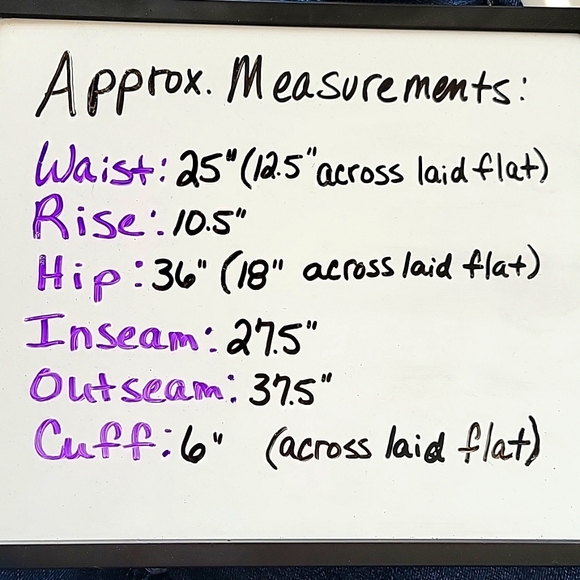 Approx. Measurements:
Waist: 25" (12.5" across laid flat)
Rise: 10.5"
Hip: 36" (18" across laid flat)
Inseam: 27.5"
Outseam: 37.5"
Cuff: 6" (across laid flat)